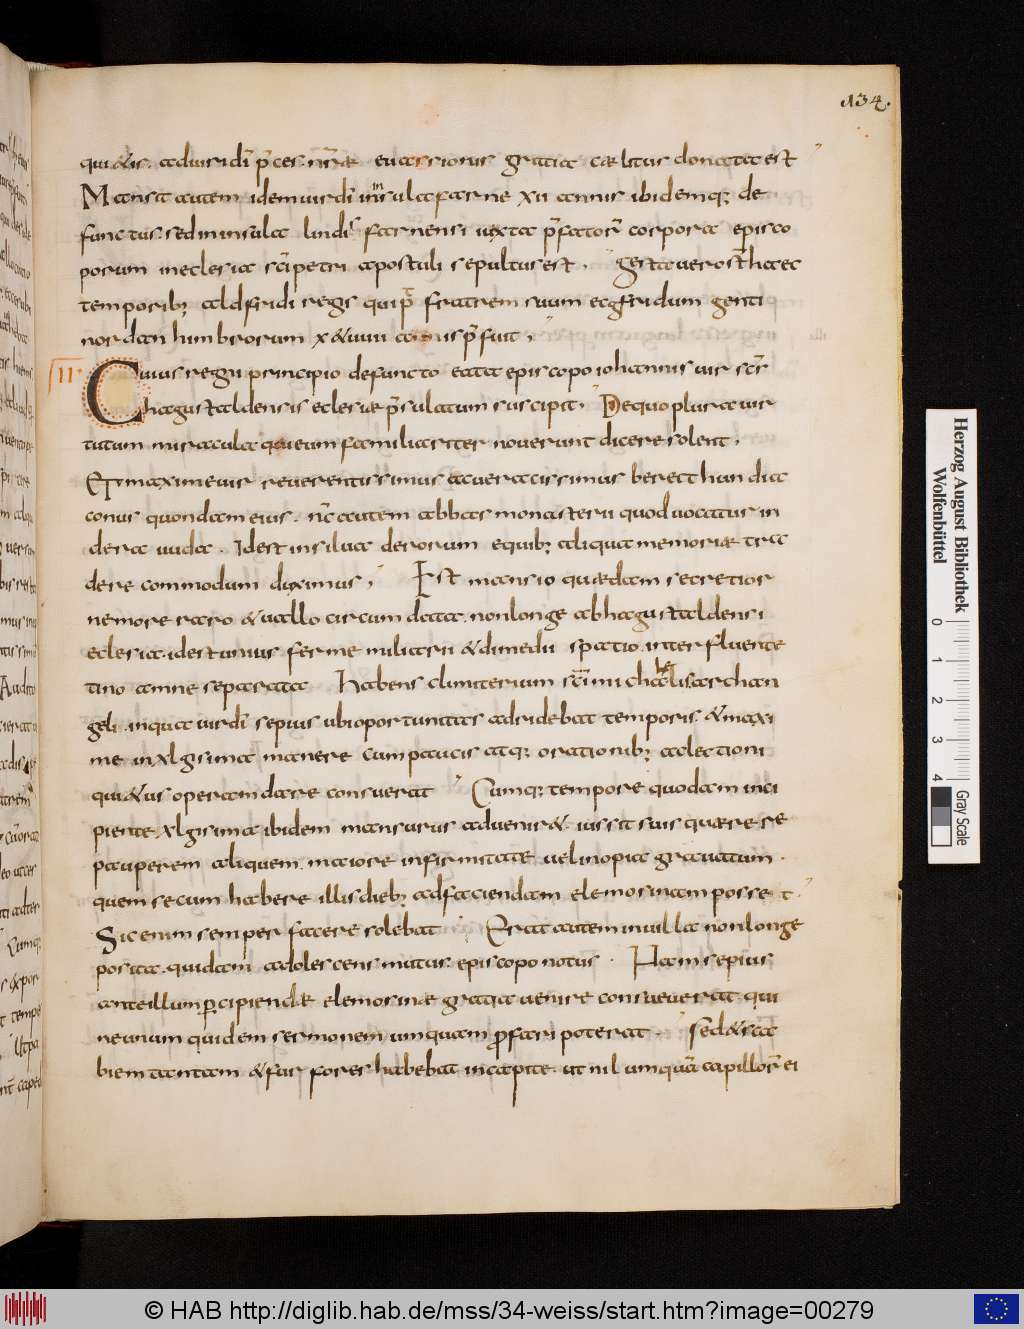 134.
qui&is. aduiri dī p̄ces. nr̄ae euassionis gratia caelitus donata est
Mansit autem idem uir dī in insula farne xii annis ibidemq; de
functus sed in insula lindisfarnensi iuxta p̄fator̄ corpora episco
porum in eclesia sc̄i petri apostuli sepultus est. gesta uero st̄ haec
temporib; aldfridi regis qui p̄ fratrem suum ecgfridum genti
nordanhimbrorum x &uiiii annis p̄fuit;
II. Cuius regni principio defuncto eata episcopo iohannis uir sc̄s
hagustaldensis eclesiae p̄sulatum suscipit. De quo plura uir
tutum miracula qui eum familiariter nouerunt dicere solent;
Et maxime uir reuerentissimus ac ueracissimus berecthun dia
conus quondam eius. nc̄ autem abbas monasterii quod uocatur in
dera uuda. Id est in silua derorum equib; aliqua memoriae tra
dere commodum duximus; Est mansio quaedam secretior
nemore raro &uallo circumdata. non longe ab hagustaldensi
eclesia. id est unius ferme miliarii &dimedii spatio. interfluente
tino amne separata Habens climiterium sc̄i michahelis archan
geli. in qua uir dī sepius ubi oportunitas adridebat temporis. &maxi
me in xlgisima manere cum paucis atq; orationib; ac lectioni
qui&us operam dare consuerat Cumq; tempore quodam inci
piente xlgisima ibidem mansurus aduenir& iussit suis quaerere
pauperem aliquem. maiore infirmitate uel inopia grauatum.
quem secum habere illis dieb; ad faciendam elemosinam posset
Sic enim semper facere solebat; Erat autem in uilla non longe
posita. quidam adolescens mutus. episcopo notus. Nam sepius
ante illum percipiendae elemosinae gratia uenire consueuerat. qui
ne unum quidem sermonem umquam profari poterat. Sed &sca
biem tantam &furfores habebat in capite. ut nil umquā capillor̄ ei
Herzog August Bibliothek
Wolfenbüttel
0 1 2 3 4
Gray Scale
© HAB http://diglib.hab.de/mss/34-weiss/start.htm?image=00279